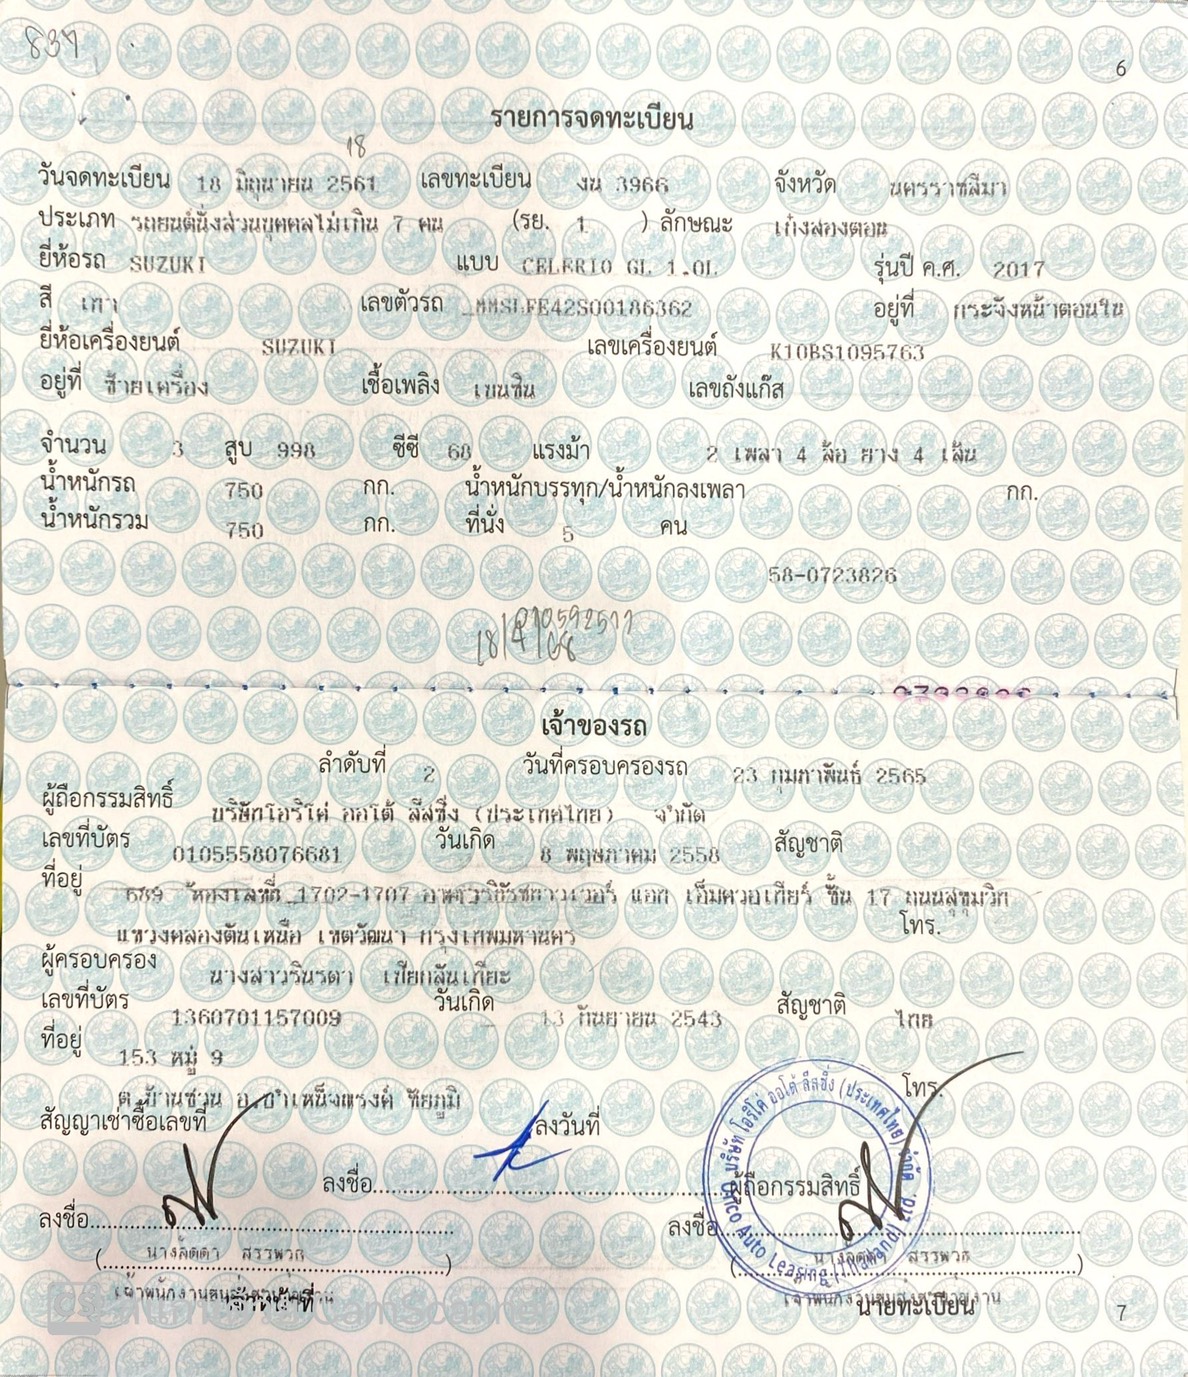 837
6
รายการจดทะเบียน
18
วันจดทะเบียน 18 มิถุนายน 2561 เลขทะเบียน งน 3966 จังหวัด นครราชสีมา
ประเภท รถยนต์นั่งส่วนบุคคลไม่เกิน 7 คน (รย. 1 ) ลักษณะ เก๋งสองตอน
ยี่ห้อรถ SUZUKI แบบ CELERIO GL 1.0L รุ่นปี ค.ศ. 2017
สี เทา เลขตัวรถ MMSLFE42S00186362 อยู่ที่ กระจังหน้าตอนใน
ยี่ห้อเครื่องยนต์ SUZUKI เลขเครื่องยนต์ K10BS1095763
อยู่ที่ ซ้ายเครื่อง เชื้อเพลิง เบนซิน เลขถังแก๊ส
จำนวน 3 สูบ 998 ซีซี 68 แรงม้า 2 เพลา 4 ล้อ ยาง 4 เส้น
น้ำหนักรถ 750 กก. น้ำหนักบรรทุก/น้ำหนักลงเพลา กก.
น้ำหนักรวม 750 กก. ที่นั่ง 5 คน
58-0723826
18/4/68
เจ้าของรถ
ลำดับที่ 2 วันที่ครอบครองรถ 23 กุมภาพันธ์ 2565
ผู้ถือกรรมสิทธิ์ บริษัทโอริโค่ ออโต้ ลีสซิ่ง (ประเทศไทย) จำกัด
เลขที่บัตร 0105558076681 วันเกิด 8 พฤษภาคม 2558 สัญชาติ
ที่อยู่ 689 ห้องเลขที่ 1702-1707 อาคารภิรัชทาวเวอร์ แอท เอ็มควอเทียร์ ชั้น 17 ถนนสุขุมวิท
แขวงคลองตันเหนือ เขตวัฒนา กรุงเทพมหานคร โทร.
ผู้ครอบครอง นางสาววรินรดา เขียกสันเทียะ
เลขที่บัตร 1360701157009 วันเกิด 13 กันยายน 2543 สัญชาติ ไทย
ที่อยู่ 153 หมู่ 9
ต.บ้านชวน อ.บำเหน็จณรงค์ ชัยภูมิ โทร.
สัญญาเช่าซื้อเลขที่ ลงวันที่
ลงชื่อ ผู้ถือกรรมสิทธิ์
ลงชื่อ ลงชื่อ
(นางลัดดา สรรพวก) (นางลัดดา สรรพวก)
เจ้าพนักงานขนส่งชำนาญงาน เจ้าพนักงานขนส่งชำนาญงาน
เจ้าหน้าที่ นายทะเบียน
บริษัท โอริโค่ ออโต้ ลีสซิ่ง (ประเทศไทย) จำกัด
Orico Auto Leasing (Thailand) Ltd.
7